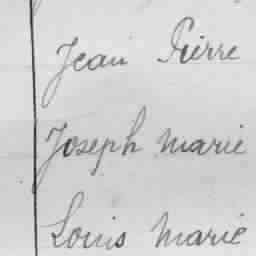 Jean Pierre
Joseph Marie
Louis Marie